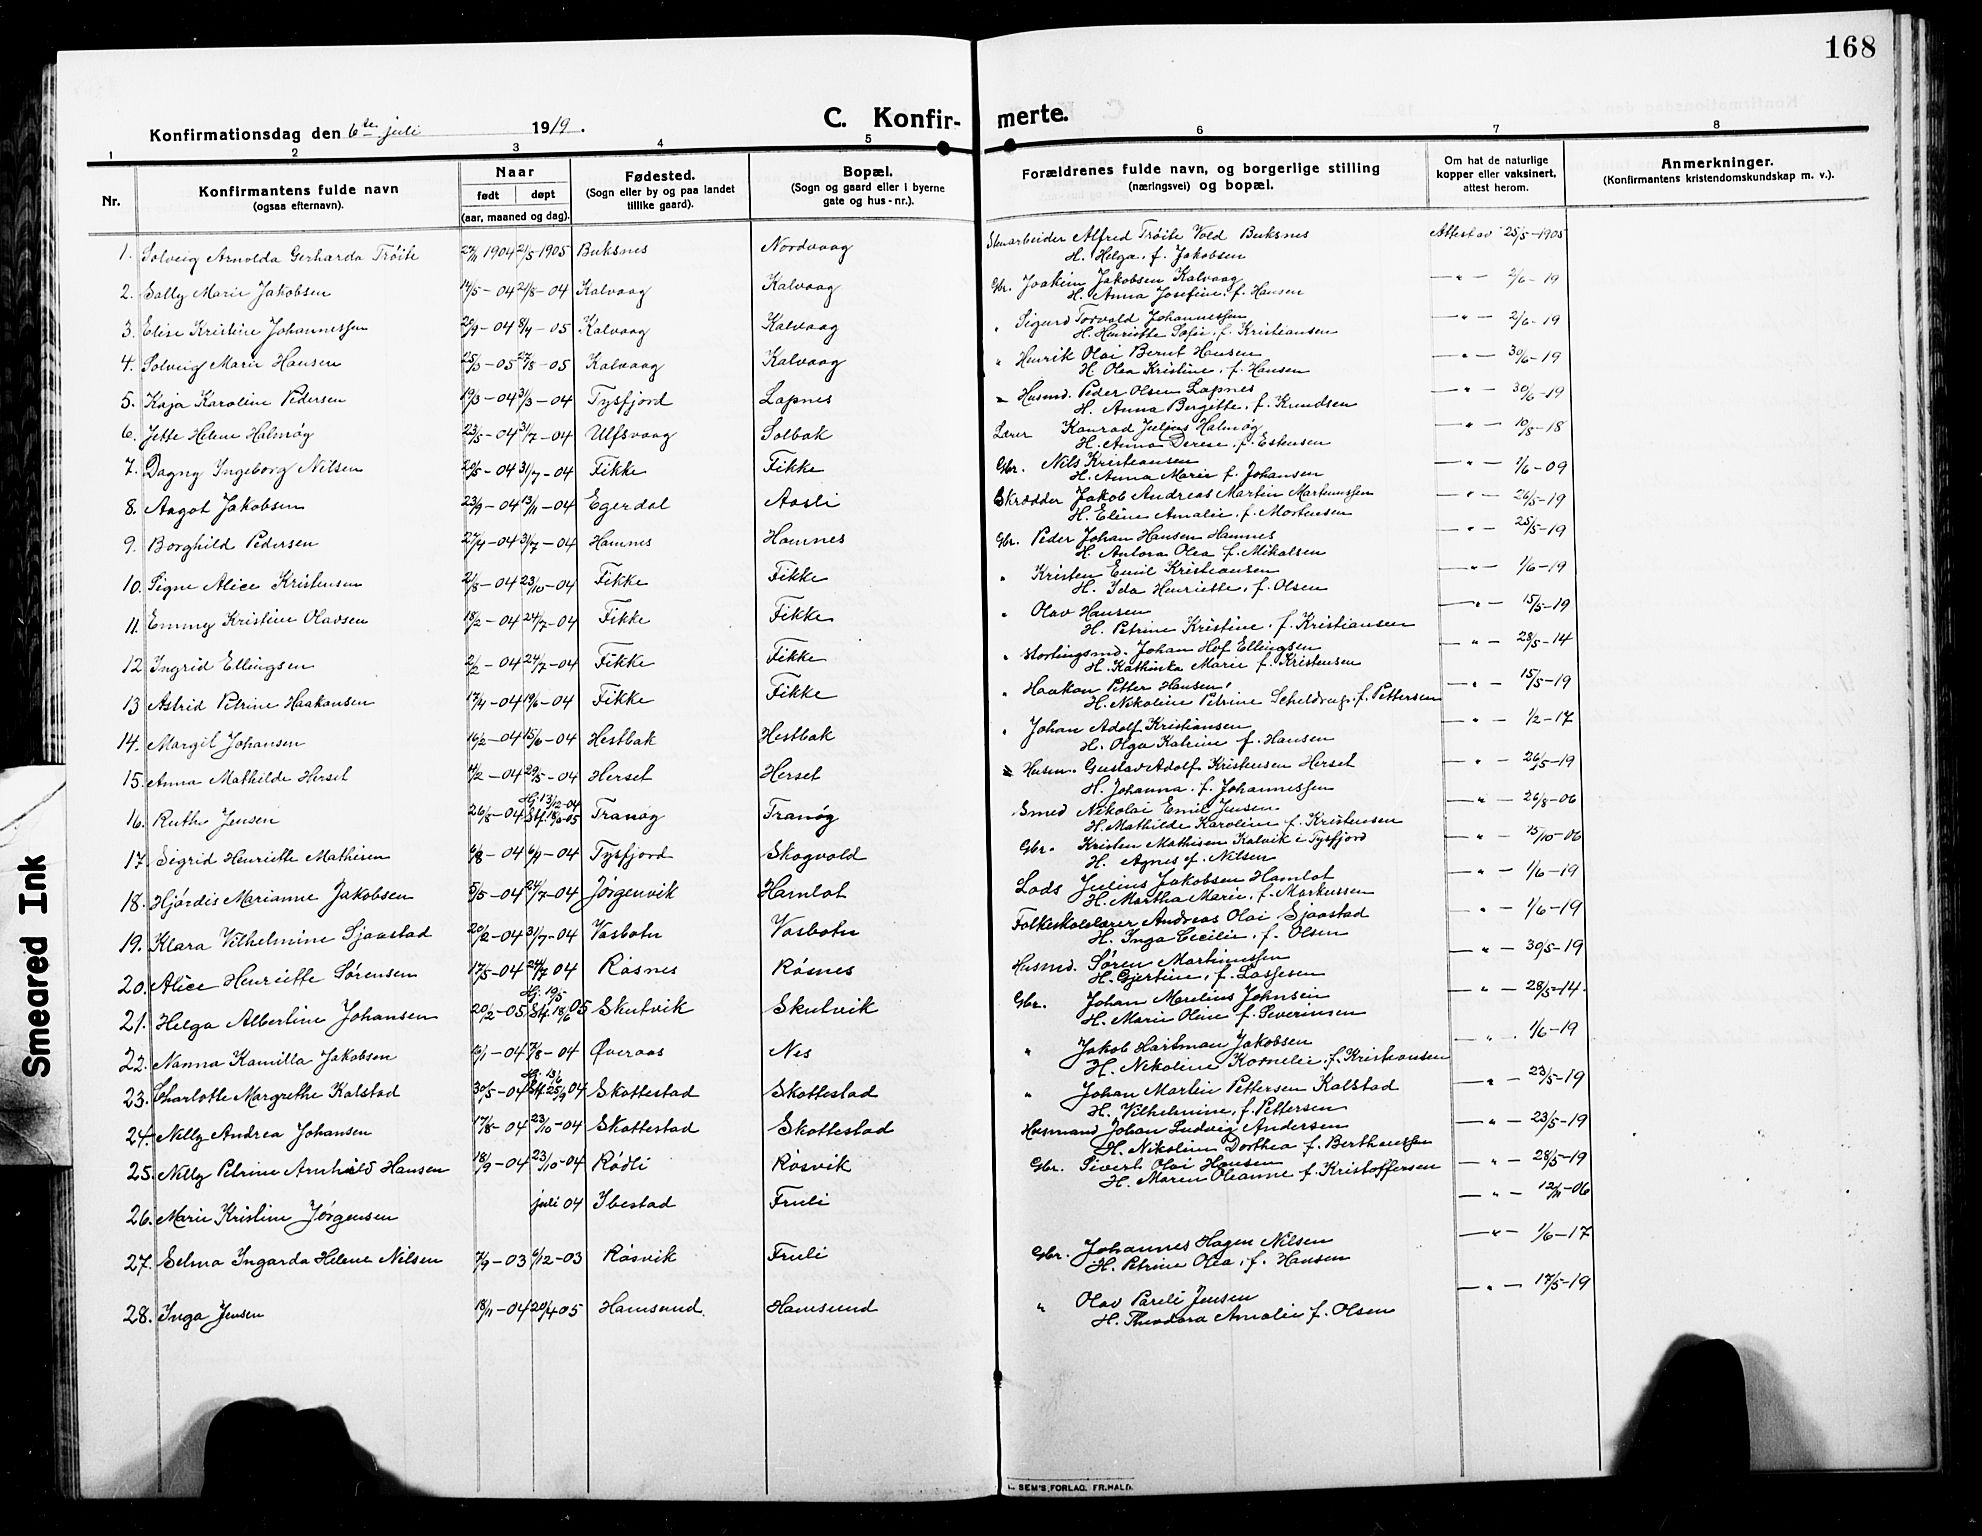 168
Konfirmationsdag den 6te juli 1919.
C. Konfir- merte.
1 2 3 4 5 6 7 8
Nr.
Konfirmantens fulde navn
(ogsaa efternavn).
Naar
født døpt
(aar, maaned og dag).
Fødested.
(Sogn eller by og paa landet
tillike gaard).
Bopæl.
(Sogn og gaard eller i byerne
gate og hus-nr.).
Forældrenes fulde navn, og borgerlige stilling
(næringsvei) og bopæl.
Om hat de naturlige
kopper eller vaksinert,
attest herom.
Anmerkninger.
(Konfirmantens kristendomskundskap m. v.).
1. Solveig Arnolda Gerharda Trøite 27/11 1904 21/5 1905 Buksnes Nordvaag Stenarbeider Alfred Trøite Vold Buksnes Attest av 25/5-1905
H. Helga, f. Jakobsen
2. Sally Marie Jakobsen 14/5-04 21/8-04 Kalvaag Kalvaag Gbr. Joakim Jakobsen Kalvaag —"— 2/6-19
H. Anna Josefine, f. Hansen
3. Elise Kristine Johannessen 20/9-04 8/4-05 Kalvaag Kalvaag " Sigurd Torvald Johannessen —"— 2/6-19
H. Henriette Sofie, f. Kristiansen
4. Solveig Marie Hansen 25/3-05 27/8-05 Kalvaag Kalvaag " Henrik Olai Bernt Hansen —"— 30/6-19
H. Olea Kristine, f. Hansen
5. Kaja Karoline Pedersen 19/3-04 31/3-04 Tysfjord Lapnes Husmd. Peder Olsen Lapnes —"— 30/6-19
H. Anna Bergitte, f. Knudsen
6. Jette Helene Halmøg 23/5-04 31/7-04 Ulfsvaag Solbak Lærer Konrad Julius Halmøg —"— 10/8-18
H. Anna Derese, f. Estensen
7. Dagny Ingeborg Nilsen 20/5-04 31/7-04 Fikke Fikke Gbr. Nils Kristiansen —"— 1/6-09
H. Anna Marie f. Johansen
8. Aagot Jakobsen 23/9-04 13/11-04 Egerdal Aasli Skrædder Jakob Andreas Martin Martinussen —"— 26/5-19
H. Eline Amalie, f. Mortensen
9. Borghild Pedersen 27/4-04 31/7-04 Hamnes Hamnes Gbr. Peder Johan Hansen Hamnes —"— 25/5-19
H. Antora Olea f. Mikalsen
10. Signe Alice Kristensen 21/8-04 23/10-04 Fikke Fikke " Kristen Emil Kristiansen —"— 1/6-19
H. Ida Henriette, f. Olsen
11. Emmy Kristine Olavsen 18/2-04 24/7-04 Fikke Fikke " Olav Hansen —"— 15/5-19
H. Petrine Kristine, f. Kristiansen
12. Ingrid Ellingsen 2/2-04 24/7-04 Fikke Fikke " Stortingsmd. Johan Hof Ellingsen —"— 28/5-14
H. Kathinka Marie f. Kristensen
13 Astrid Petrine Haakonsen 17/4-04 19/6-04 Fikke Fikke " Haakon Petter Hansen, —"— 15/5-19
H. Nikoline Petrine f. Pettersen
14. Margit Johansen 16/2-04 15/6-04 Hestbak Hestbak " Johan Adolf Kristiansen —"— 1/2-17
H. Olga Katrine f. Hansen
15. Anna Mathilde Herset 4/2-04 29/5-04 Herset Herset Husm. Gustav Adolf Kristensen Herset —"— 26/5-19
H. Johanna, f. Johannessen
16. Ruth Jensen 26/8-04 Hj. 13/12-04 Stf. 18/6-05 Tranøg Tranøg Smed Nikolai Emil Jensen —"— 26/8-06
H. Mathilde Karoline f. Kristensen
17. Sigrid Henriette Mathisen 6/8-04 6/4-04 Tysfjord Skogvold Gbr. Kristen Mathisen Kalvik i Tysfjord —"— 15/10-06
H. Agnes f. Nilsen
18. Hjørdis Marianne Jakobsen 5/5-04 24/7-04 Jørgenvik Hamlot Lods Julius Jakobsen Hamlot —"— 1/6-19
H. Martha Marie, f. Markussen
19. Klara Vilhelmine Sjaastad 20/2-04 31/7-04 Vasbotn Vasbotn Folkeskolelærer Andreas Olai Sjaastad —"— 1/6-19
H. Inga Cecilie, f. Olsen
20. Alice Henriette Sørensen 17/5-04 24/7 04 Røsnes Røsnes Husmd. Søren Martinussen —"— 30/5-19
H. Gjertine, f. Lassesen
21. Helga Albertine Johansen 20/2-05 Hj. 19/5 Stf. 18/6 05 Skutvik Skutvik Gbr. Johan Merelius Johnsen —"— 28/5-14.
H. Marie Oline f. Severinsen
22. Nanna Kamilla Jakobsen 6/1-04 7/8-04 Øveraas Nes " Jakob Hartman Jakobsen —"— 1/6-19
H. Nikoline Kornelie, f. Kristiansen
23. Charlotte Margrethe Kalstad 30/5-04 Hj. 13/6 Stf. 25/9 04 Skottestad Skottestad " Johan Martin Pettersen Kalstad —"— 23/5-19
H. Vilhelmine, f. Pettersen
24. Nelly Andrea Johansen 17/8-04 23/10-04 Skottestad Skottestad Husmand Johan Ludvig Andersen —"— 23/5-19
H. Nikoline Dorthea f. Bertheussen
25. Nelly Petrine Arnhild Hansen 18/9-04 23/10-04 Rødli Røsvik Gbr. Sivert Olai Hansen —"— 28/5-19
H. Maren Oleanne f. Kristoffersen
26. Marie Kristine Jørgensen juli 04 Ibestad Fruli —"— 12/11-06
27. Selma Ingarda Helene Nilsen 7/9-03 6/12-03 Røsvik Fruli Gbr. Johannes Hagen Nilsen —"— 1/6-17
H. Petrine Olea, f. Hansen
28. Inga Jensen 18/11-04 20/4 05 Hamsund. Hamsund " Olav Pareli Jensen —"— 17/5-19
H. Theodora Amalie f. Olsen
SEM'S FORLAG. FR.HALD.
Smeared Ink